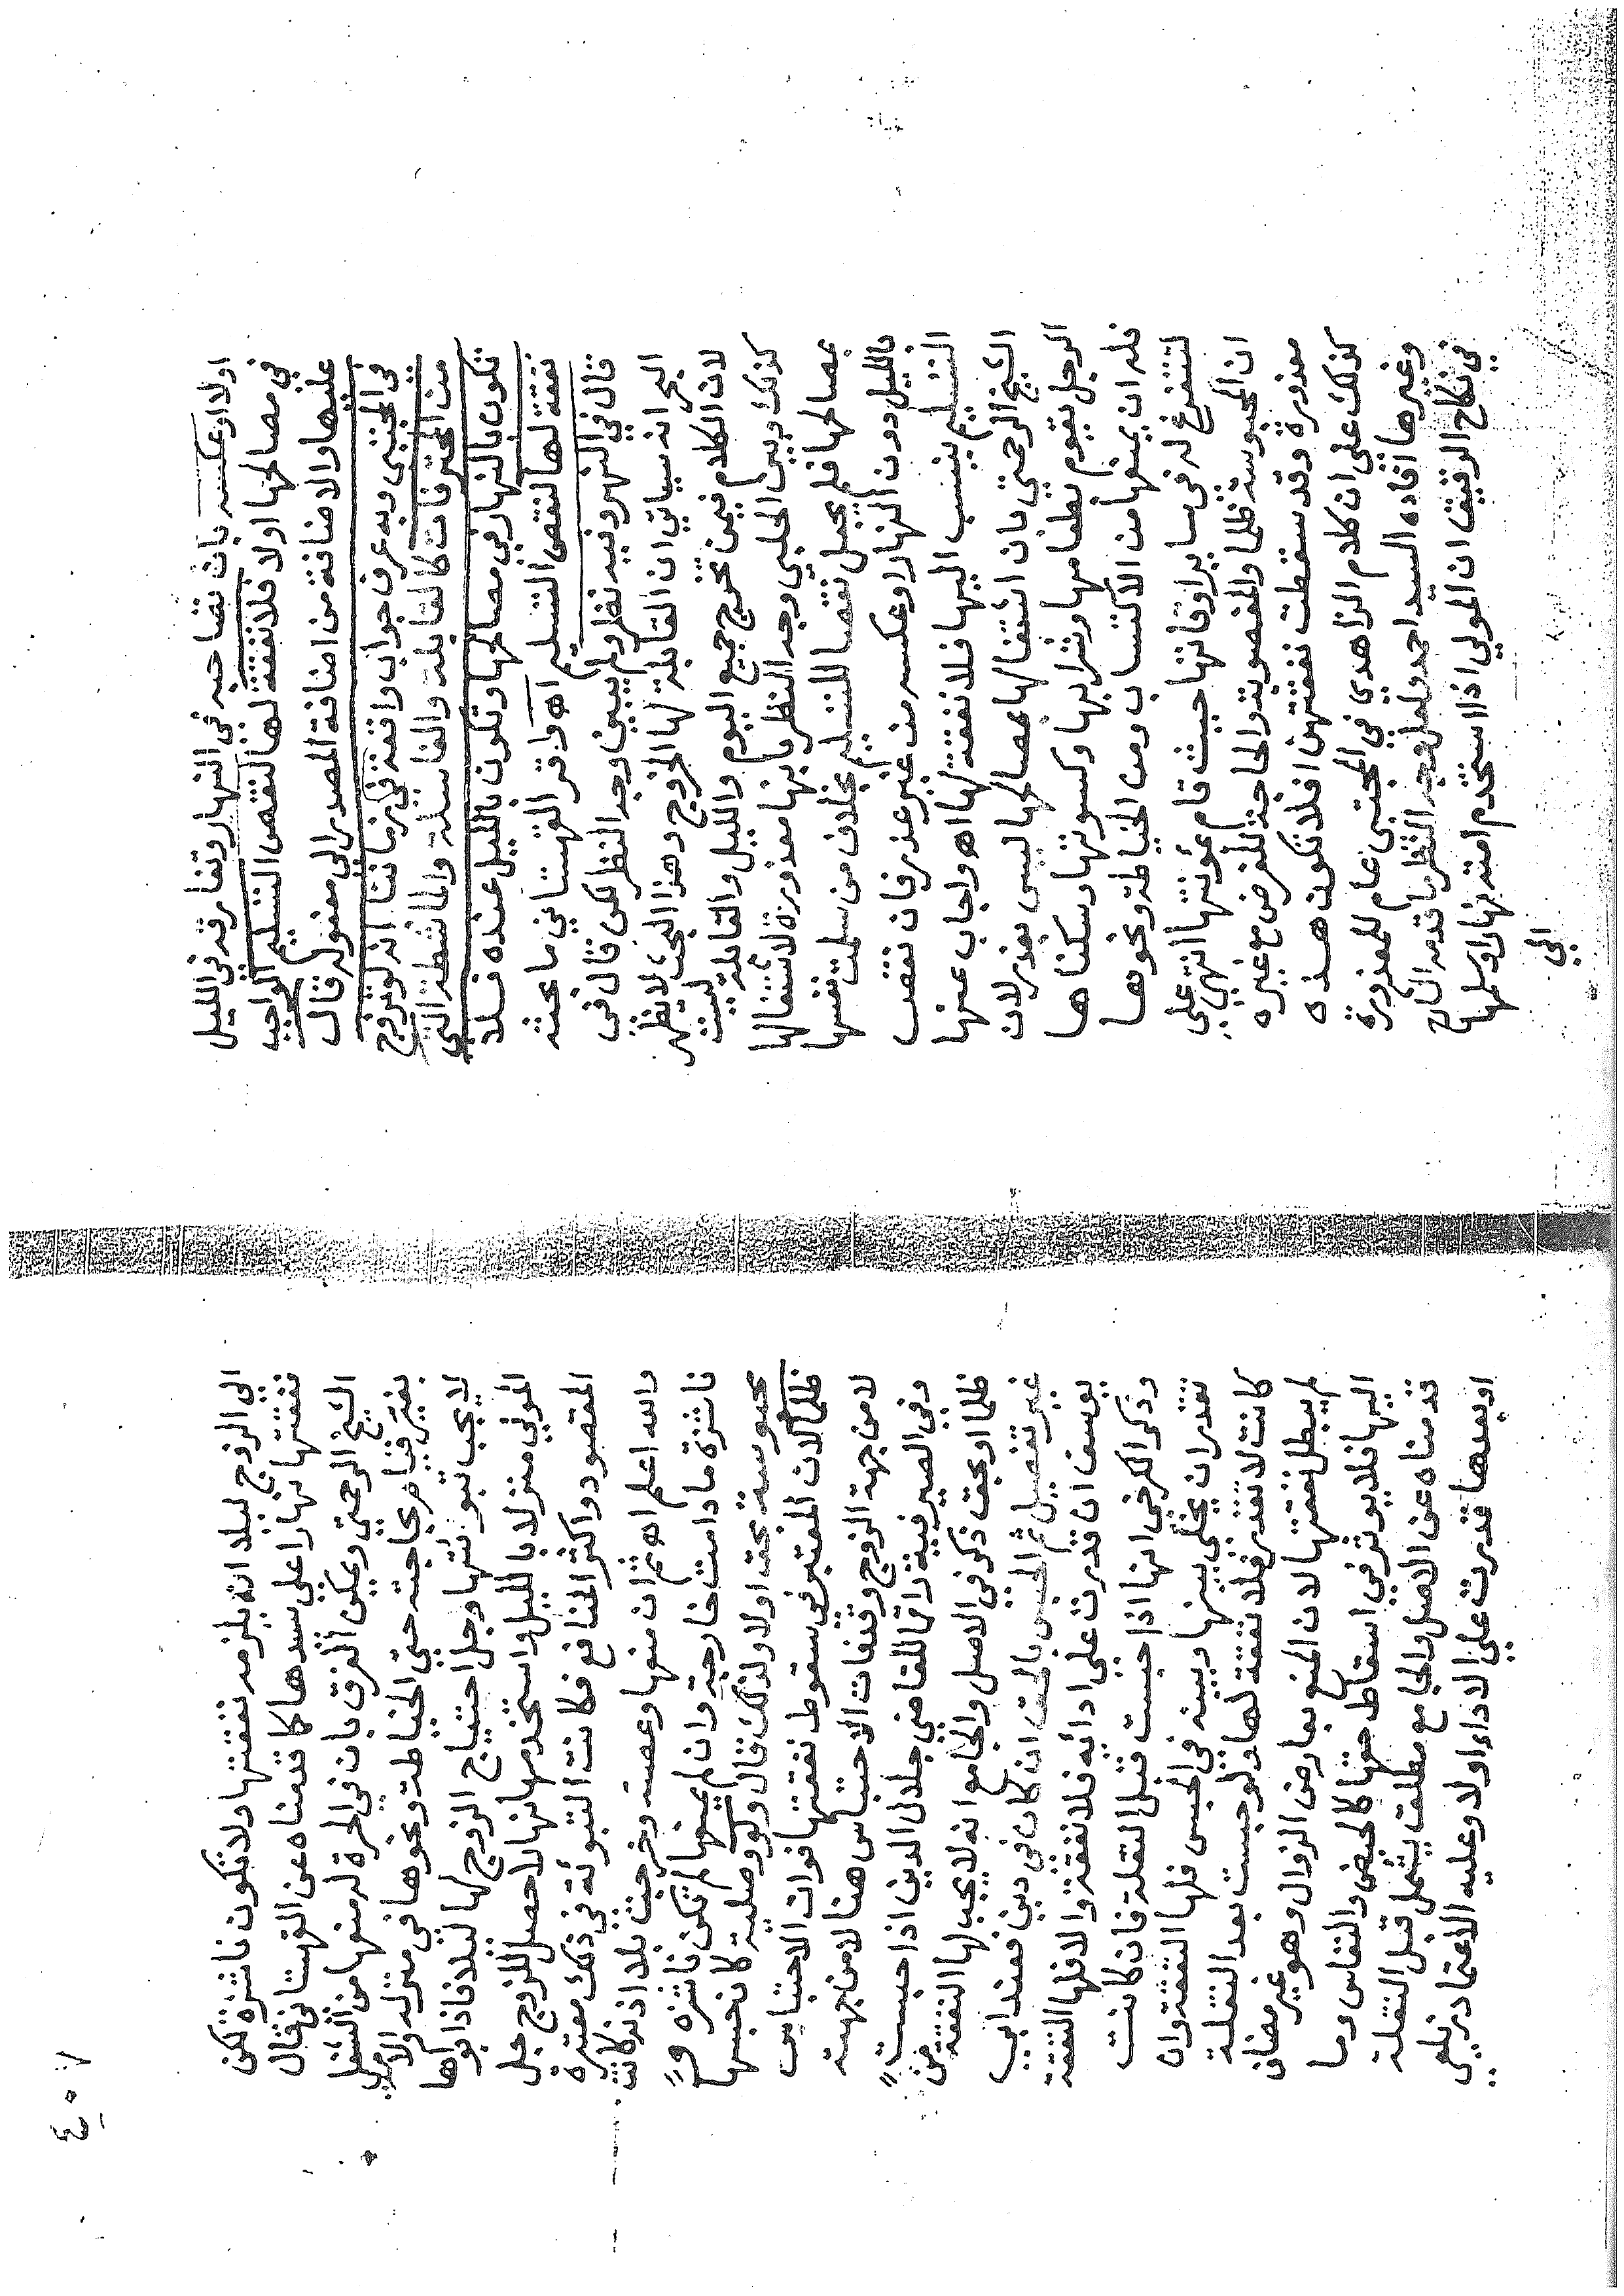 اولا او عكسه بان تقاحبه في النهار وتفارقه في الليل
في مصالحها اولا فلا نفقة لها لنقص التسليم الواجب
عليها والاضافة من اضافة المصدر الي مفعوله قال
في المجتبى وبه عرف جواب واقعة في زماننا انه لو تزوج
من المحترفات كالقابلة والغاسلة والماشطة التي
تكون بالنهار في مصالحها وتكون بالليل عنده فلا
نفقة لها لنقص التسليم اه واقره القهستاني ما بحثه
قال في النهر وفيه نظر ولم يبين وجه النظر لكن قال في
البحر انه سيأتي ان القابلة لها الخروج وهذا البحث لا يظهر
لان الكلام فيمن تخرج جميع اليوم والليل والقابلة ليست
كذلك وبين الحلبي وجه النظر بانها معذورة لاشتغالها
بمصالحها فلم يجعل نقصا للتسليم بخلاف من سلمت نفسها
بالليل دون النهار او عكسه من غير عذر فان نقص
التسليم ينسب اليها فلا نفقة لها اه واجاب عنها
الشيخ الرحمتي بان اشتغالها بمصالحها ليس بعذر لان
الرجل يقوم بطعامها وشرابها وكسوتها وسكناها
فله ان يمنعها من الاكتساب ومن الخياطة ونحوها
لتتفرغ له في ساير اوقاتها حيث قام بمؤنتها انتهي علي
ان المحبوسة ظلما والمغصوبة والحاجة للفرض مع غيره
معذورة وقد سقطت نفقتهن افلا تكون هذه
كذلك على ان كلام الزاهدي في المجتبى عام للمعذورة
وغيرها افاده السيد احمد ولعل وجه النظر ما قدمه الشارح
في نكاح الرقيق ان المولي اذا استخدم امته نهارا وسلمها
الي
الى الزوج ليلا انه يلزمه نفقتها ولا تكون ناشزة لكن
نفقتها نهارا علي سيدها كما قدمناه عن القهستاني قال
الشيخ الرحمتي ويمكن الفرق بان في الحرة له منعها من الشغل
بغير قيام بحاجته حتي الخياطة ونحوها في منزله والامة
لا يجب تبوئتها وجل احتياج الزوج لها ليلا فاذا بوأها
المولي منزلا بالليل واستخدمها نهارا حصل للزوج جل
المقصود واكثر المنافع فكانت التبوئة في ذلك معتبرة
والله اعلم اه ثم ان منعها وعصته وخرجت بلا اذنه كانت
ناشزة ما دامت خارجة وان لم يمنعها لم تكن ناشزة و
محبوسة بحق اولا ولذلك قال ولو وصلية كان حبسها
ظلما لان المعتبر في سقوط نفقتها فوات الاحتباس
لا من جهة الزوج وقد فات الاحتباس هنا لا من جهته
وفي الصيرفية راقما للقاضي جلال الدين اذا حبست
ظلما او بحق ذكر في الاصل والجامع انه لا يجب لها النفقة من
غير تفصيل ثم الحبس بالحق انه كان في دين فعند ابي
يوسف ان قدرت علي ادائه فلا نفقة والا فلها النفقة
وذكر الكرخي انها اذا حبست قبل النقلة فان كانت
تقدر ان يخلي بينها وبينه في الحبس فلها النفقة وان
كانت لا تقدر فلا نفقة لها ولو حبست بعد النقلة
لم يبطل نفقتها لان المنع بعارض الزوال وهو غير مضاف
اليها فلا يوثر في اسقاط حقها كالحيض والنفاس وما
قدمناه عن الاصل والجامع مطلق يشمل قبل النقلة
او بعدها قدرت علي الاداء اولا وعليه الاعتماد زيلعي